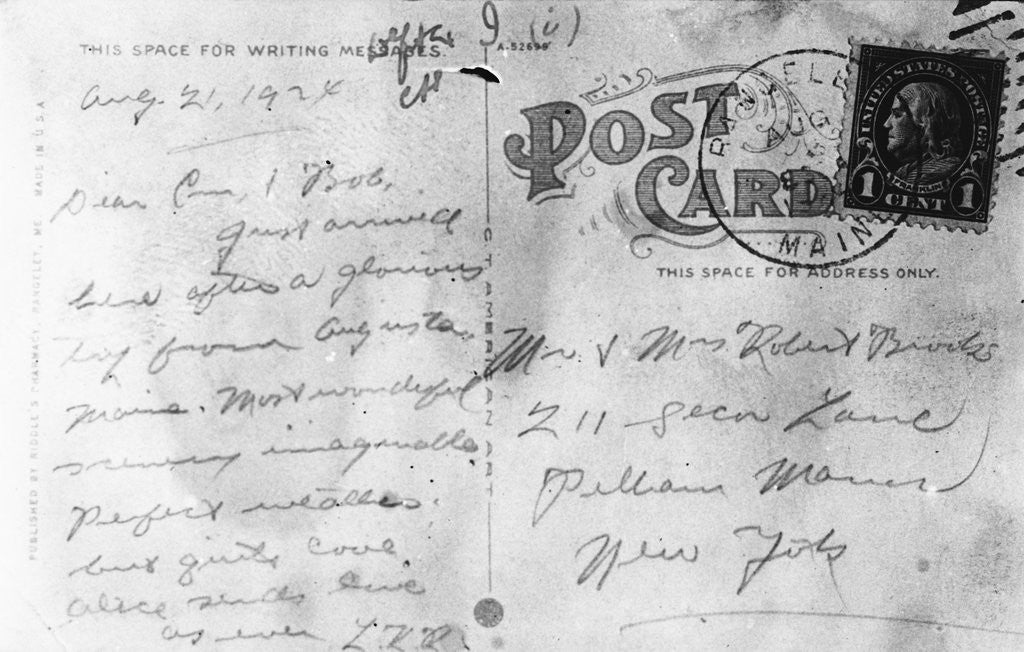 THIS SPACE FOR WRITING MESSAGES.
A-52699
Aug. 21, 1924
Dear Em, & Bob,
Just arrived
here after a glorious
trip from Augusta,
Maine. Most wonderful
scenery imaginable
Perfect weather.
but quite cool
Alice sends love
as ever L.K.R.
PUBLISHED BY RIDDLE'S PHARMACY, RANGELEY, ME. MADE IN U.S.A.
C.T. AMERICAN ART
POST CARD
RANGELEY
AUG
MAINE
UNITED STATES POSTAGE
FRANKLIN
1 CENT 1
THIS SPACE FOR ADDRESS ONLY.
Mr & Mrs Robert Brooks
211 Secor Lane
Pelham Manor
New York